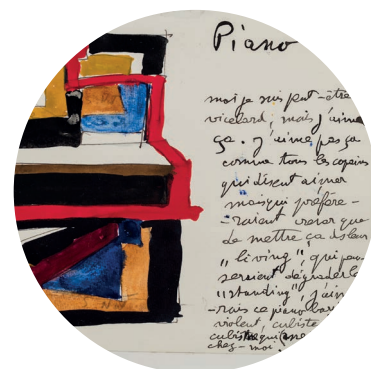 Piano
moi je suis peut-être
vicelard, mais j'aime
ça. j'aime pas ça
comme tous les copains
qui disent aimer
mais qui préfère-
raient crever que
de mettre ça ds leur
"living", qui pour
seraient dégrader le
"standing", j'aim
-rais ce piano bar
violent, cubiste
cubiste qui
chez-moi.